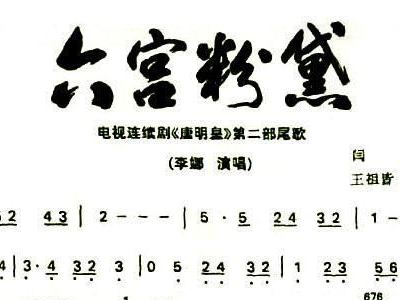 六宫粉黛
电视连续剧《唐明皇》第二部尾歌
(李娜 演唱)
闫
王祖皆
52 43 | 2 - - - | 5 · 5 24 32 | 1 -
4 | 3·4 32 3 | 0 5 24 32 | 1 23 5
676